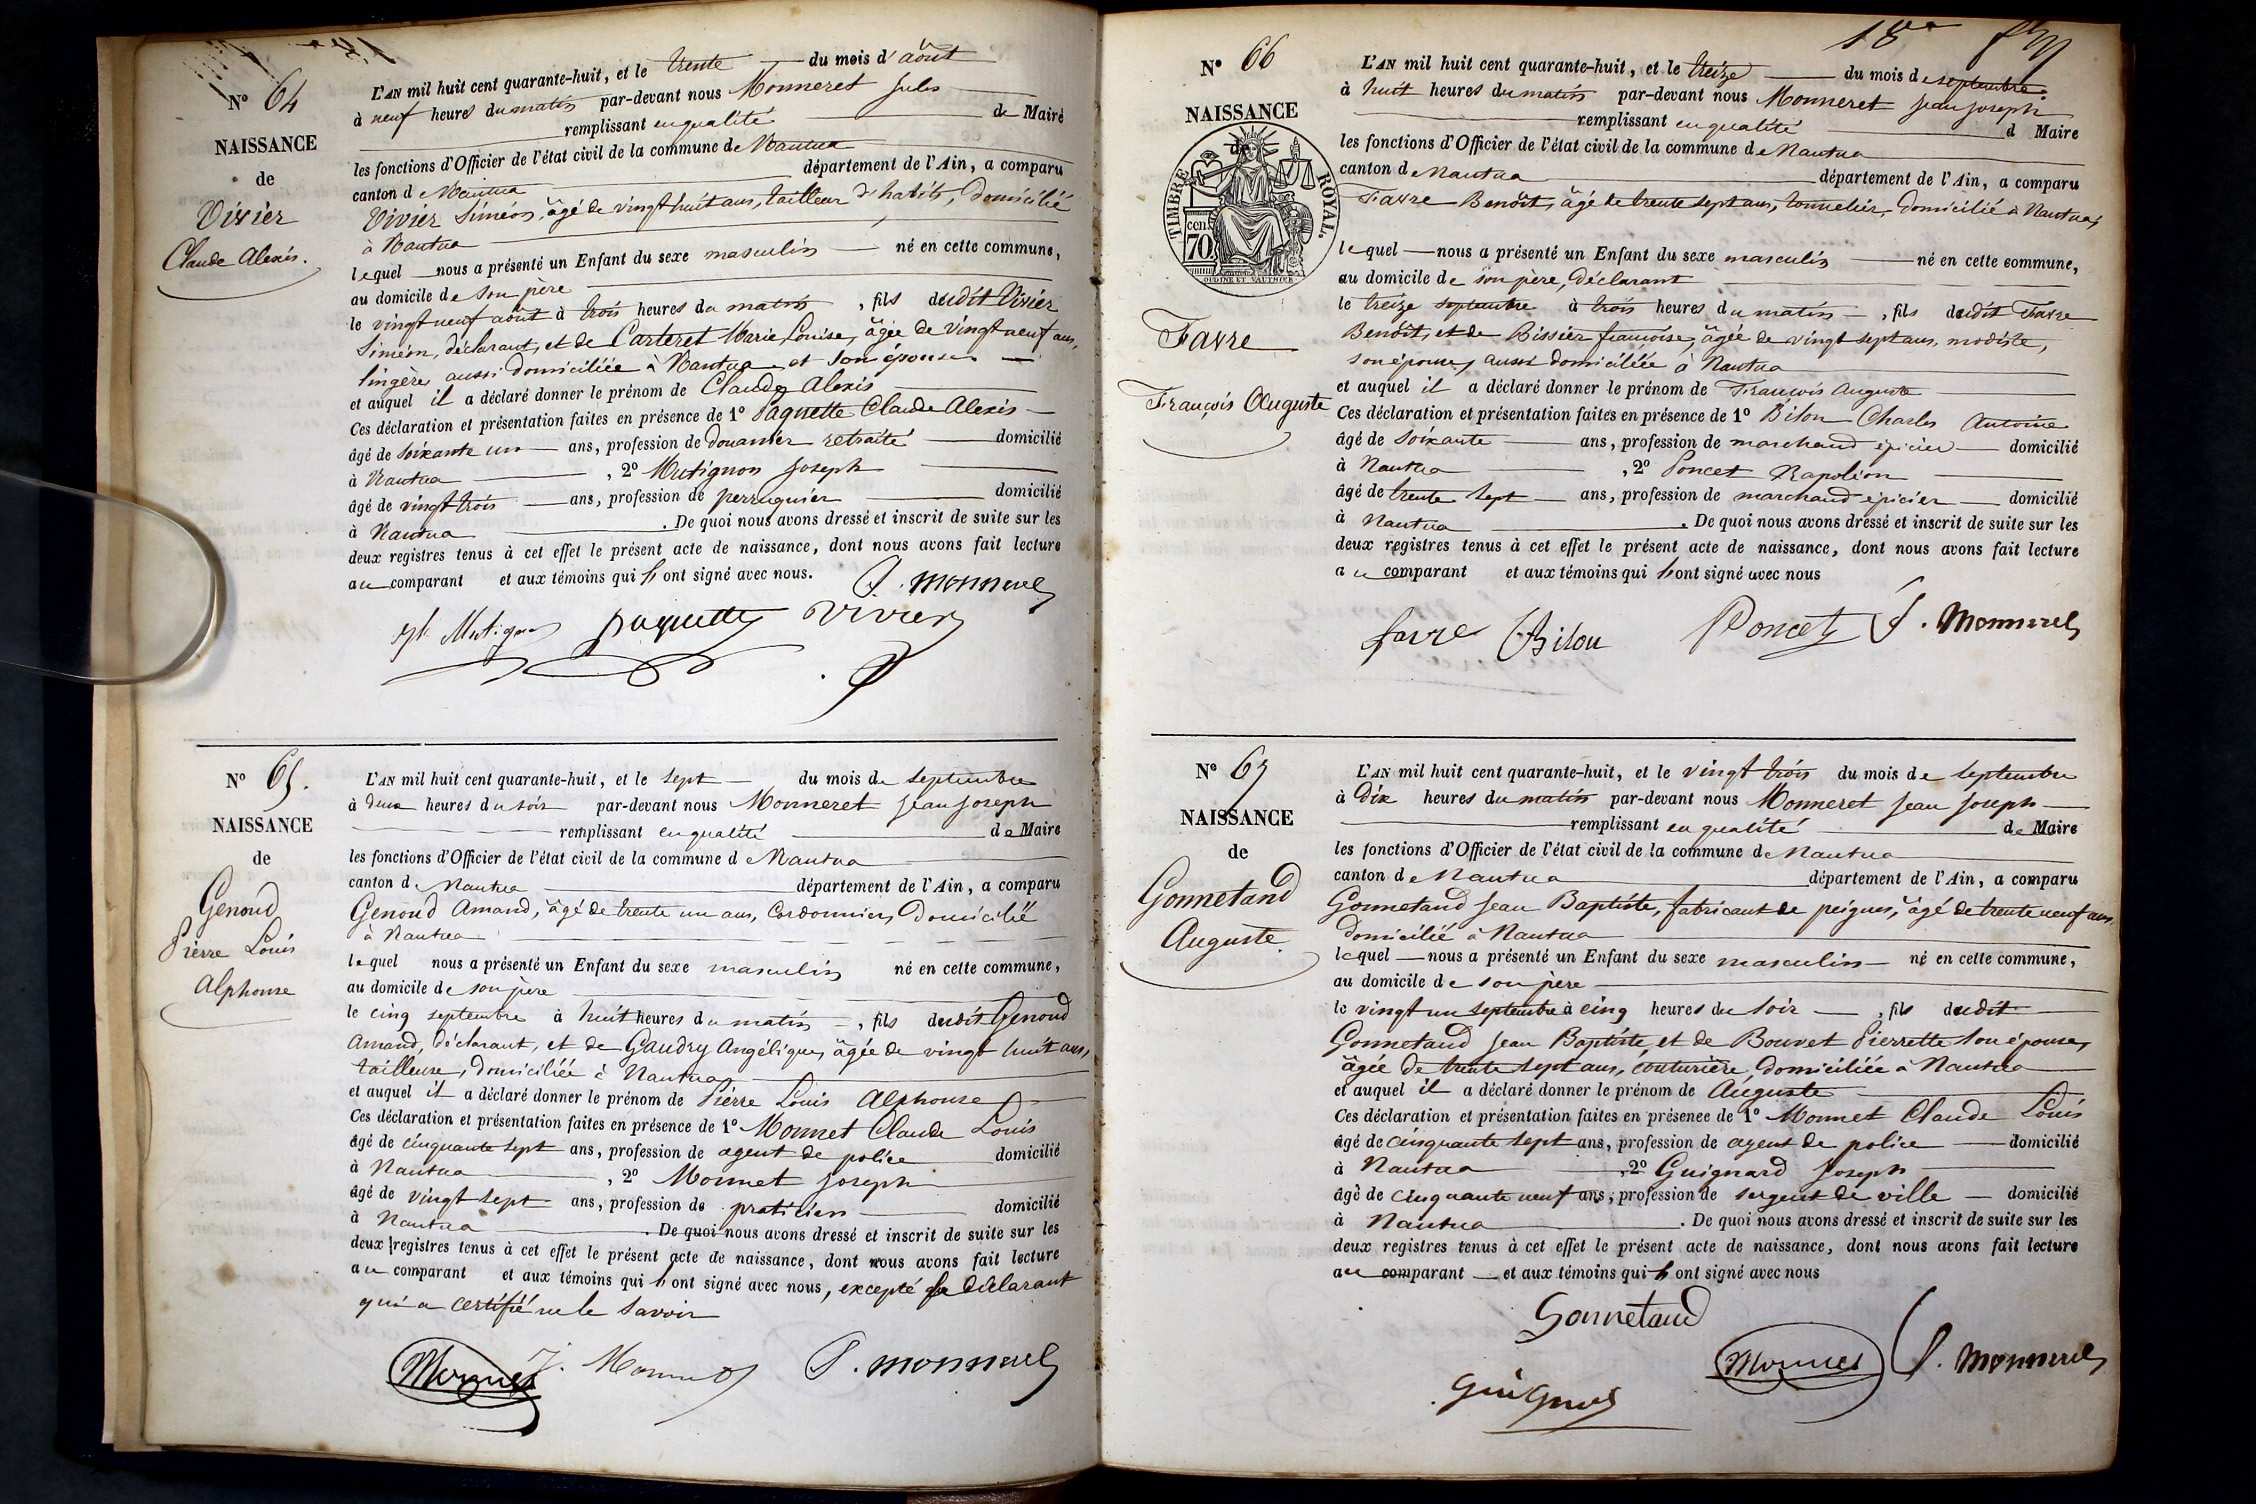 N° 64
NAISSANCE
de
Vivier
Claude Alexis.
L'AN mil huit cent quarante-huit, et le trente du mois d'août
à neuf heures du matin par-devant nous Monneret Jules
remplissant en qualité de Maire
les fonctions d'Officier de l'état civil de la commune de Nantua
canton de Nantua département de l'Ain, a comparu
Vivier Siméon, âgé de vingt huit ans, tailleur d'habits, domicilié
à Nantua
lequel nous a présenté un Enfant du sexe masculin né en cette commune,
au domicile de son père
le vingt neuf août à trois heures du matin, fils dudit Vivier
Siméon, déclarant, et de Carteret Marie Louise, âgée de vingt neuf ans,
lingère, aussi domiciliée à Nantua et son épouse
et auquel il a déclaré donner le prénom de Claude Alexis
Ces déclaration et présentation faites en présence de 1° Paquette Claude Alexis
âgé de soixante un ans, profession de douanier retraité domicilié
à Nantua, 2° Mutignon Joseph
âgé de vingt trois ans, profession de perruquier domicilié
à Nantua. De quoi nous avons dressé et inscrit de suite sur les
deux registres tenus à cet effet le présent acte de naissance, dont nous avons fait lecture
au comparant et aux témoins qui ont signé avec nous.
J. Monneret
Mutignon Paquette Vivier
N° 65.
NAISSANCE
de
Genoud
Pierre Louis
Alphonse
L'AN mil huit cent quarante-huit, et le sept du mois de septembre
à deux heures du soir par-devant nous Monneret Jean Joseph
remplissant en qualité de Maire
les fonctions d'Officier de l'état civil de la commune de Nantua
canton de Nantua département de l'Ain, a comparu
Genoud Amand, âgé de trente un ans, Cordonnier, Domicilié
à Nantua
lequel nous a présenté un Enfant du sexe masculin né en cette commune,
au domicile de son père
le cinq septembre à huit heures du matin, fils dudit Genoud
Amand, déclarant, et de Gaudry Angélique, âgée de vingt huit ans,
tailleuse, domiciliée à Nantua
et auquel il a déclaré donner le prénom de Pierre Louis Alphonse
Ces déclaration et présentation faites en présence de 1° Monnet Claude Louis
âgé de cinquante sept ans, profession de agent de police domicilié
à Nantua, 2° Monnet Joseph
âgé de vingt sept ans, profession de praticien domicilié
à Nantua. De quoi nous avons dressé et inscrit de suite sur les
deux registres tenus à cet effet le présent acte de naissance, dont nous avons fait lecture
au comparant et aux témoins qui ont signé avec nous, excepté le déclarant
qui a certifié ne le savoir
Monnet J. Monnet J. Monneret
18
N° 66
NAISSANCE
de
TIMBRE ROYAL.
70 cen
Favre
François Auguste
L'AN mil huit cent quarante-huit, et le treize du mois de septembre
à huit heures du matin par-devant nous Monneret Jean Joseph
remplissant en qualité d Maire
les fonctions d'Officier de l'état civil de la commune de Nantua
canton de Nantua département de l'Ain, a comparu
Favre Benoît, âgé de trente sept ans, tonnelier, domicilié à Nantua,
lequel nous a présenté un Enfant du sexe masculin né en cette commune,
au domicile de son père, déclarant
le treize septembre à trois heures du matin, fils dudit Favre
Benoît, et de Bissier françoise, âgée de vingt sept ans, modiste,
son épouse, aussi domiciliée à Nantua
et auquel il a déclaré donner le prénom de François Auguste
Ces déclaration et présentation faites en présence de 1° Bilon Charles Antoine
âgé de soixante ans, profession de marchand épicier domicilié
à Nantua, 2° Poncet Napoléon
âgé de trente sept ans, profession de marchand épicier domicilié
à Nantua. De quoi nous avons dressé et inscrit de suite sur les
deux registres tenus à cet effet le présent acte de naissance, dont nous avons fait lecture
au comparant et aux témoins qui ont signé avec nous
favre Bilon Poncet J. Monneret
N° 67
NAISSANCE
de
Gonnetand
Auguste
L'AN mil huit cent quarante-huit, et le vingt trois du mois de septembre
à dix heures du matin par-devant nous Monneret Jean Joseph
remplissant en qualité de Maire
les fonctions d'Officier de l'état civil de la commune de Nantua
canton de Nantua département de l'Ain, a comparu
Gonnetand Jean Baptiste, fabricant de peignes, âgé de trente neuf ans,
domicilié à Nantua
lequel nous a présenté un Enfant du sexe masculin né en cette commune,
au domicile de son père
le vingt un septembre à cinq heures du soir, fils dudit
Gonnetand Jean Baptiste, et de Bouvet Pierrette son épouse,
âgée de trente sept ans, couturière, domiciliée à Nantua
et auquel il a déclaré donner le prénom de Auguste
Ces déclaration et présentation faites en présence de 1° Monnet Claude Louis
âgé de cinquante sept ans, profession de agent de police domicilié
à Nantua, 2° Guignard Joseph
âgé de cinquante neuf ans, profession de sergent de ville domicilié
à Nantua. De quoi nous avons dressé et inscrit de suite sur les
deux registres tenus à cet effet le présent acte de naissance, dont nous avons fait lecture
au comparant et aux témoins qui ont signé avec nous
Gonnetand
Monnet J. Monneret